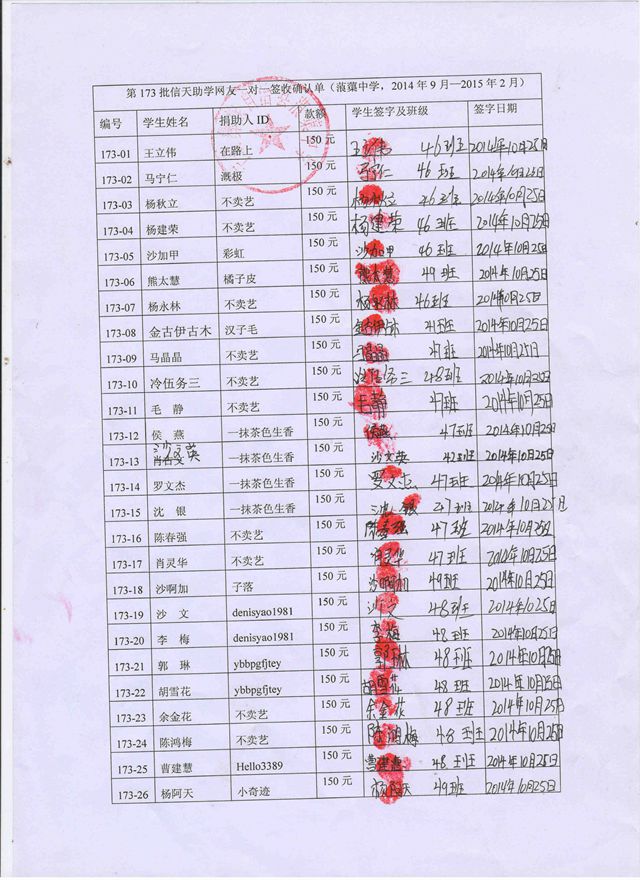 第 173 批信天助学网友一对一签收确认单（蒗蕖中学，2014 年 9 月—2015 年 2 月）
编号 学生姓名 捐助人 ID 款额 学生签字及班级 签字日期
173-01 王立伟 在路上 150 元 46班 2014年10月25日
173-02 马宁仁 溉极 150 元 马宁仁 46班 2014年10月25日
173-03 杨秋立 不卖艺 150 元 46班 2014年10月25日
173-04 杨建荣 不卖艺 150 元 杨建荣 46班 2014年10月25日
173-05 沙加甲 彩虹 150 元 沙加甲 46班 2014年10月25日
173-06 熊太慧 橘子皮 150 元 熊太慧 49班 2014年10月25日
173-07 杨永林 不卖艺 150 元 杨永林 46班 2014年10月25日
173-08 金古伊古木 汉子毛 150 元 2014年10月25日
173-09 马晶晶 不卖艺 150 元 马晶晶 47班 2014年10月25日
173-10 冷伍务三 不卖艺 150 元 48班 2014年10月25日
173-11 毛 静 不卖艺 150 元 毛静 47班 2014年10月25日
173-12 侯 燕 一抹茶色生香 150 元 侯燕 47班 2014年10月25日
173-13 沙文英 一抹茶色生香 150 元 沙文英 42班 2014年10月25日
173-14 罗文杰 一抹茶色生香 150 元 罗文杰 47班 2014年10月25日
173-15 沈 银 一抹茶色生香 150 元 沈银 47班 2014年10月25日
173-16 陈春强 不卖艺 150 元 陈春强 47班 2014年10月25日
173-17 肖灵华 不卖艺 150 元 肖灵华 47班 2014年10月25日
173-18 沙啊加 子落 150 元 沙啊加 49班 2014年10月25日
173-19 沙 文 denisyao1981 150 元 沙文 48班 2014年1025日
173-20 李 梅 denisyao1981 150 元 李梅 48班 2014年10月25日
173-21 郭 琳 ybbpgfjtey 150 元 郭琳 48班 2014年10月25日
173-22 胡雪花 ybbpgfjtey 150 元 胡雪花 48班 2014年10月25日
173-23 余金花 不卖艺 150 元 余金花 48班 2014年10月25日
173-24 陈鸿梅 不卖艺 150 元 陈鸿梅 48班 2014年10月25日
173-25 曹建慧 Hello3389 150 元 曹建惠 48班 2014年10月25日
173-26 杨阿天 小奇迹 150 元 杨阿天 49班 2014年10月25日